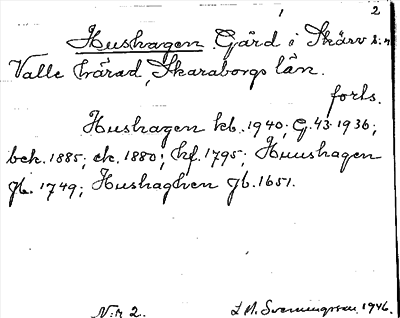 1 2
Hushagen. Gård i Skärv s:n
Valle härad, Skaraborgs län.
forts.
Hushagen kb. 1940; G. 43 1936;
bek. 1885; ek. 1880; hf. 1795; Huushagen
Jb. 1749; Hushaghen Jb. 1651.
N:r 2. 1946.